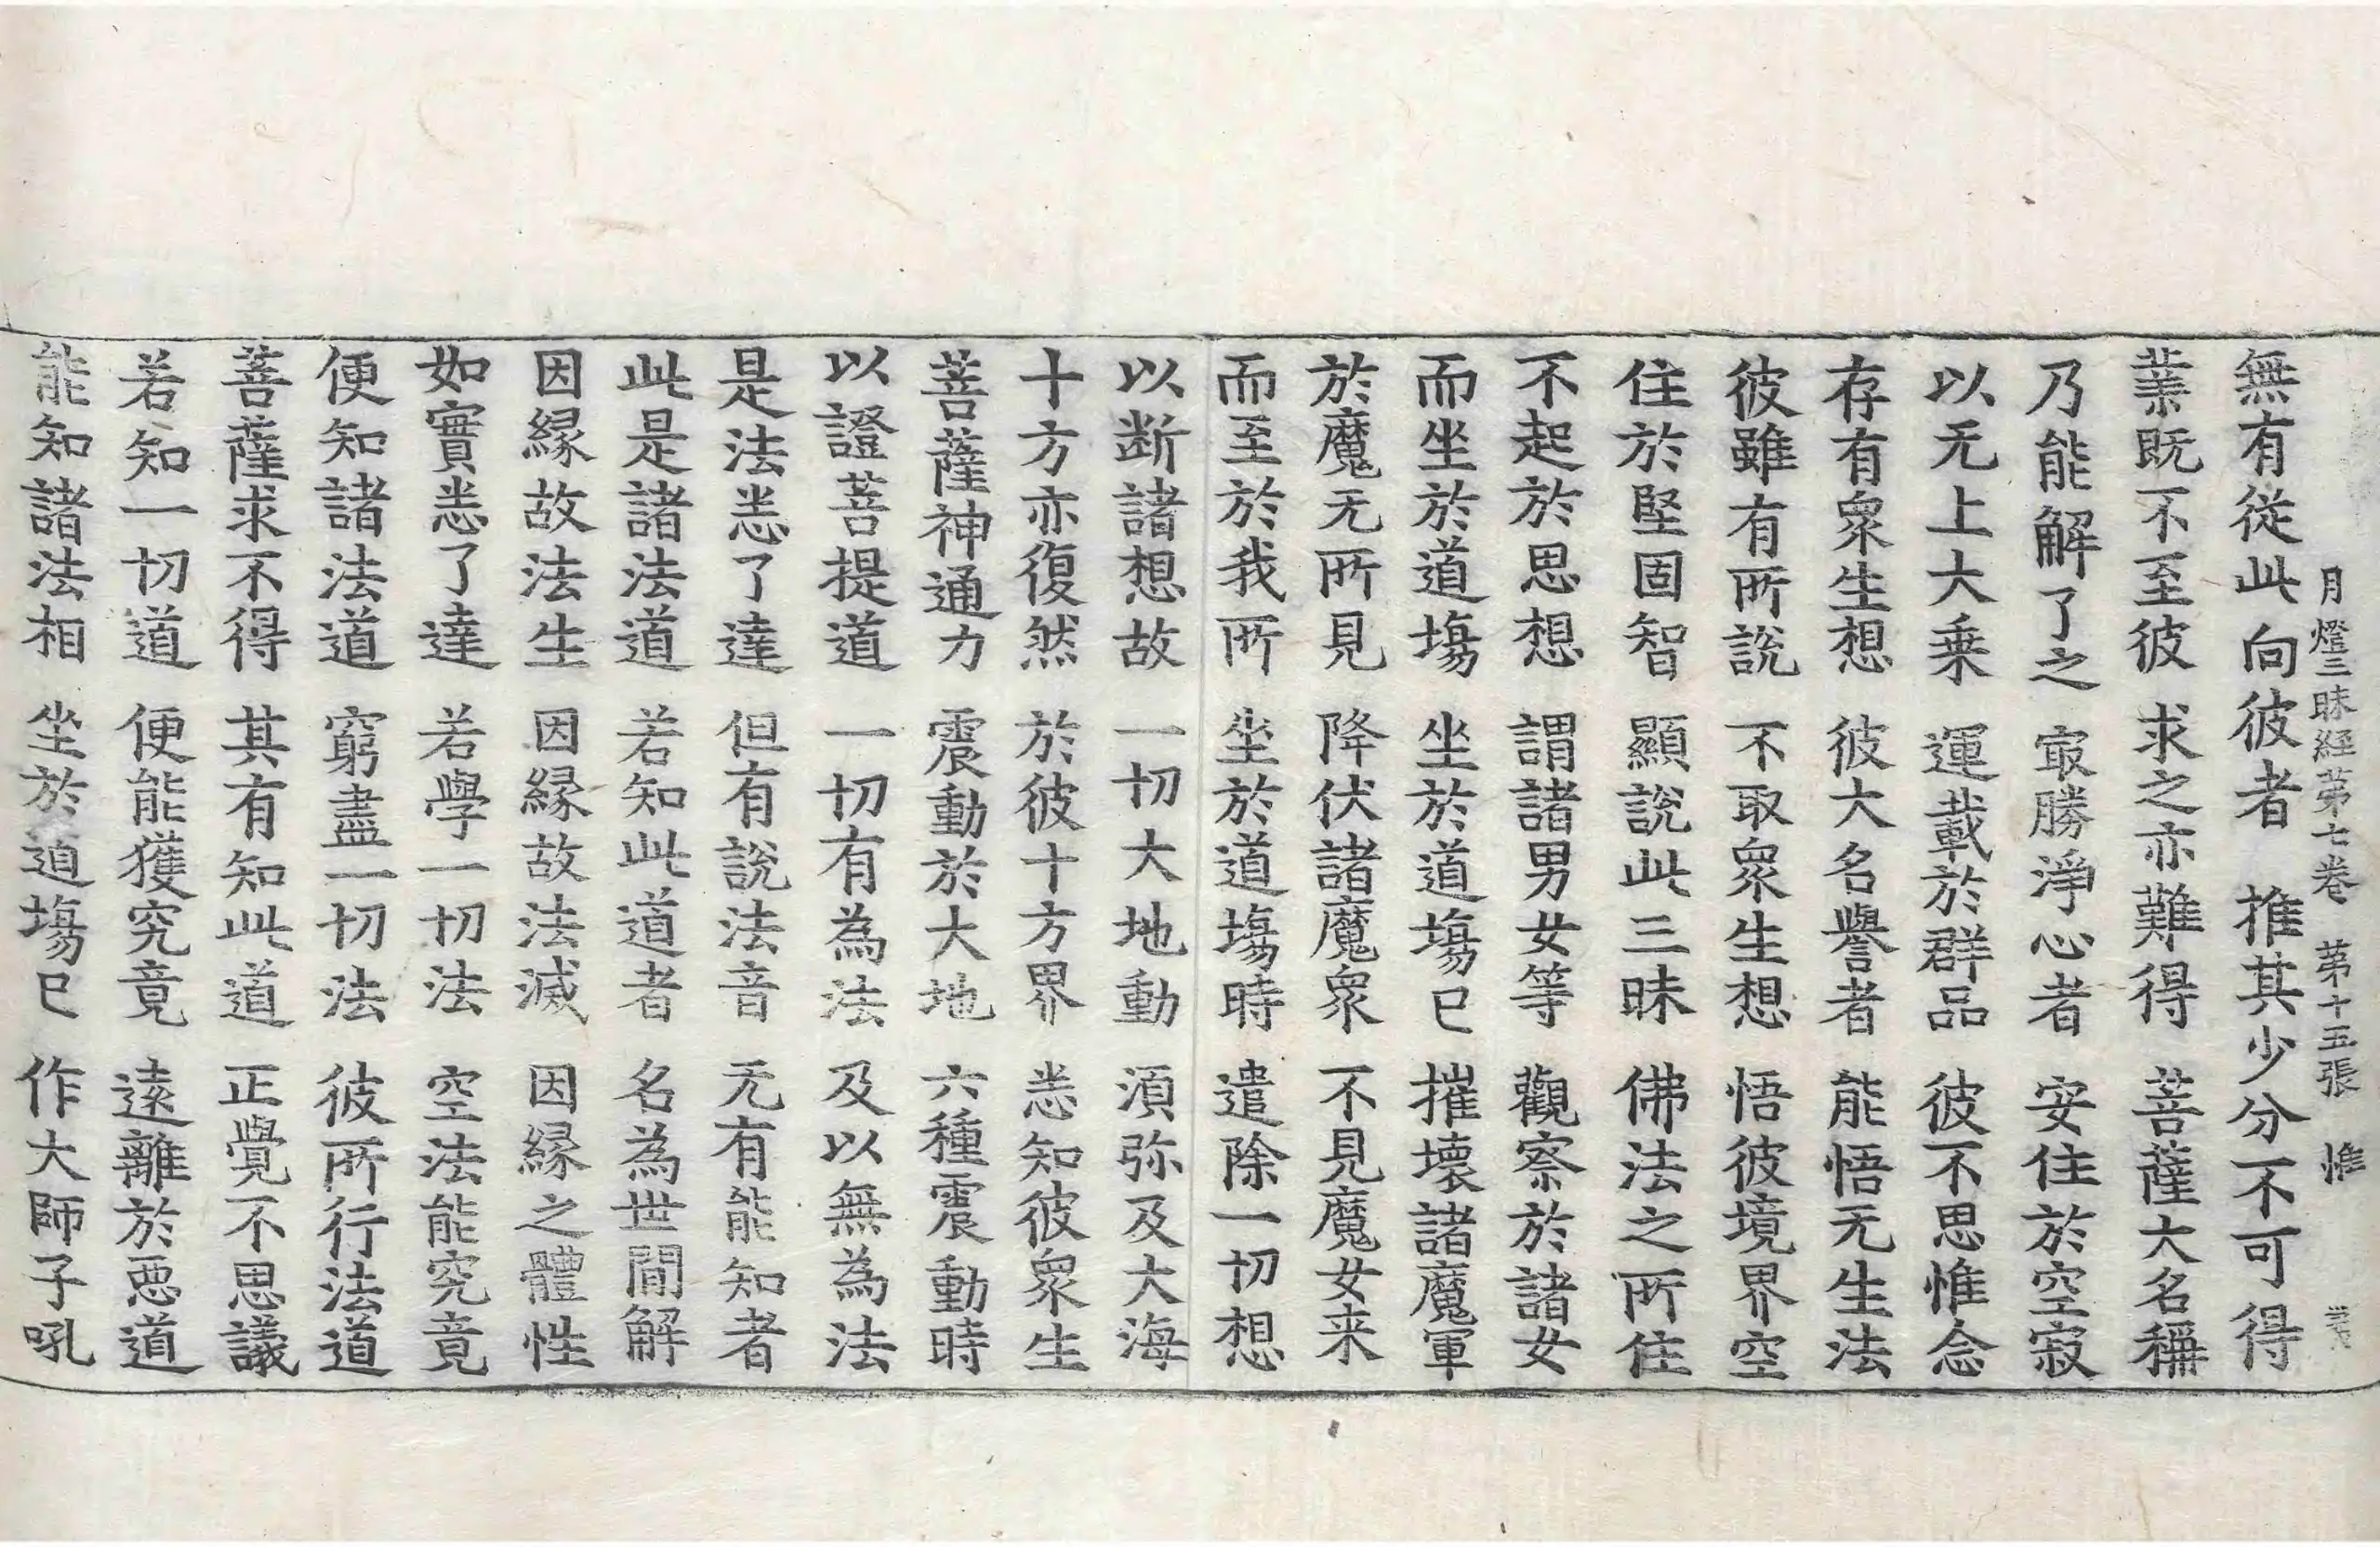 月燈三昧経苐七卷　苐十五張　惟
無有從此向彼者　推其少分不可得
業既不至彼　求之亦難得　菩薩大名稱
乃能解了之　㝡勝淨心者　安住於空寂
以无上大乗　運載於群品　彼不思惟念
存有衆生想　彼大名譽者　能悟无生法
彼雖有所說　不取衆生想　悟彼境界空
住於堅固智　顯說此三昧　佛法之所住
不起於思想　謂諸男女等　觀察於諸女
而坐於道塲　坐於道塲已　摧壞諸魔軍
於魔无所見　降伏諸魔衆　不見魔女来
而至於我所　坐於道塲時　遣除一切想
以断諸想故　一切大地動　湏弥及大海
十方亦復然　於彼十方界　悉知彼衆生
菩薩神通力　震動於大地　六種震動時
以證菩提道　一切有為法　及以無為法
是法悉了達　但有說法音　无有能知者
此是諸法道　若知此道者　名為世間解
因縁故法生　因縁故法滅　因縁之體性
如實悉了達　若學一切法　空法能究竟
便知諸法道　窮盡一切法　彼所行法道
菩薩求不得　其有知此道　正覺不思議
若知一切道　便能獲究竟　遠離於惡道
能知諸法相　坐於道塲已　作大師子吼